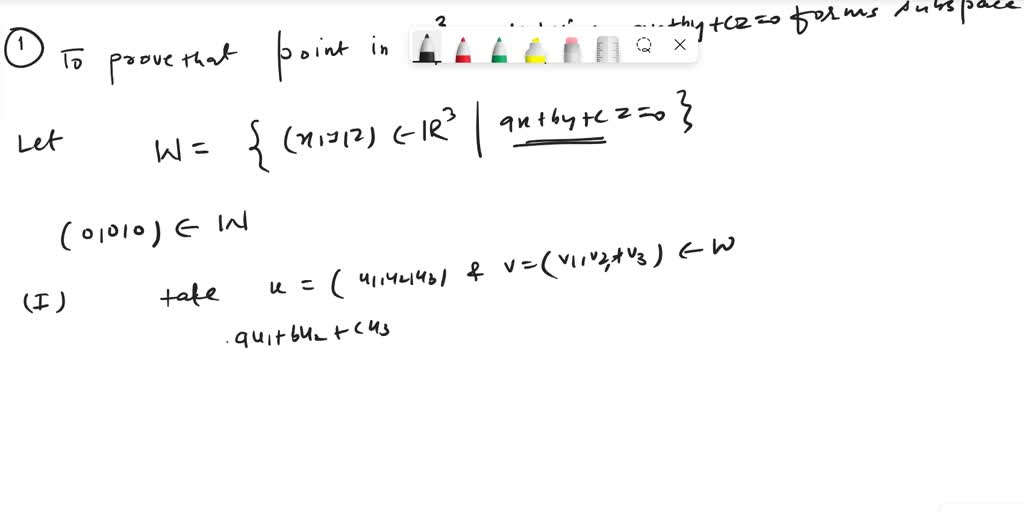 ① To prove that point in by+cz=0 forms subspace
Let W = { (x,y,z) ∈ ℝ³ | ax+by+cz=0 }
(0,0,0) ∈ W
(I) take u = (u₁,u₂,u₃) & v=(v₁,v₂,+v₃) ∈ W
au₁+bu₂+cu₃